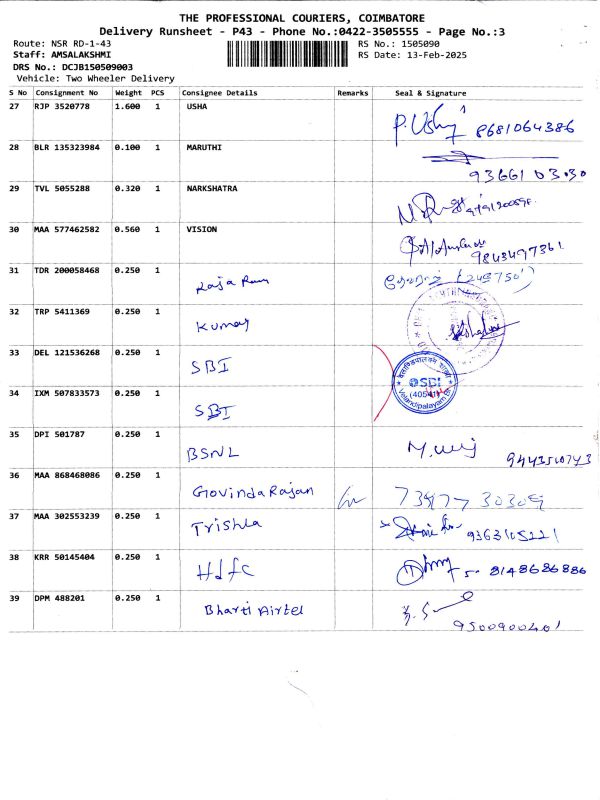 THE PROFESSIONAL COURIERS, COIMBATORE
Delivery Runsheet - P43 - Phone No.:0422-3505555 - Page No.:3
Route: NSR RD-1-43 RS No.: 1505090
Staff: AMSALAKSHMI RS Date: 13-Feb-2025
DRS No.: DCJB150509003
Vehicle: Two Wheeler Delivery
S No Consignment No Weight PCS Consignee Details Remarks Seal & Signature
27 RJP 3520778 1.600 1 USHA P. Usha 8681064386
28 BLR 135323984 0.100 1 MARUTHI
93661 03030
29 TVL 5055288 0.320 1 NARKSHATRA
30 MAA 577462582 0.560 1 VISION
9843497361
31 TDR 200058468 0.250 1
Raja Ram
32 TRP 5411369 0.250 1
Kumar
33 DEL 121536268 0.250 1
SBI
SBI
(40541)
Velandipalayam
34 IXM 507833573 0.250 1
SBI
35 DPI 501787 0.250 1
BSNL 9443510743
36 MAA 868468086 0.250 1
GovindaRajan
37 MAA 302553239 0.250 1
Trishla 9363105221
38 KRR 50145404 0.250 1
Hdfc 8148686886
39 DPM 488201 0.250 1
Bharti Airtel
9500900401